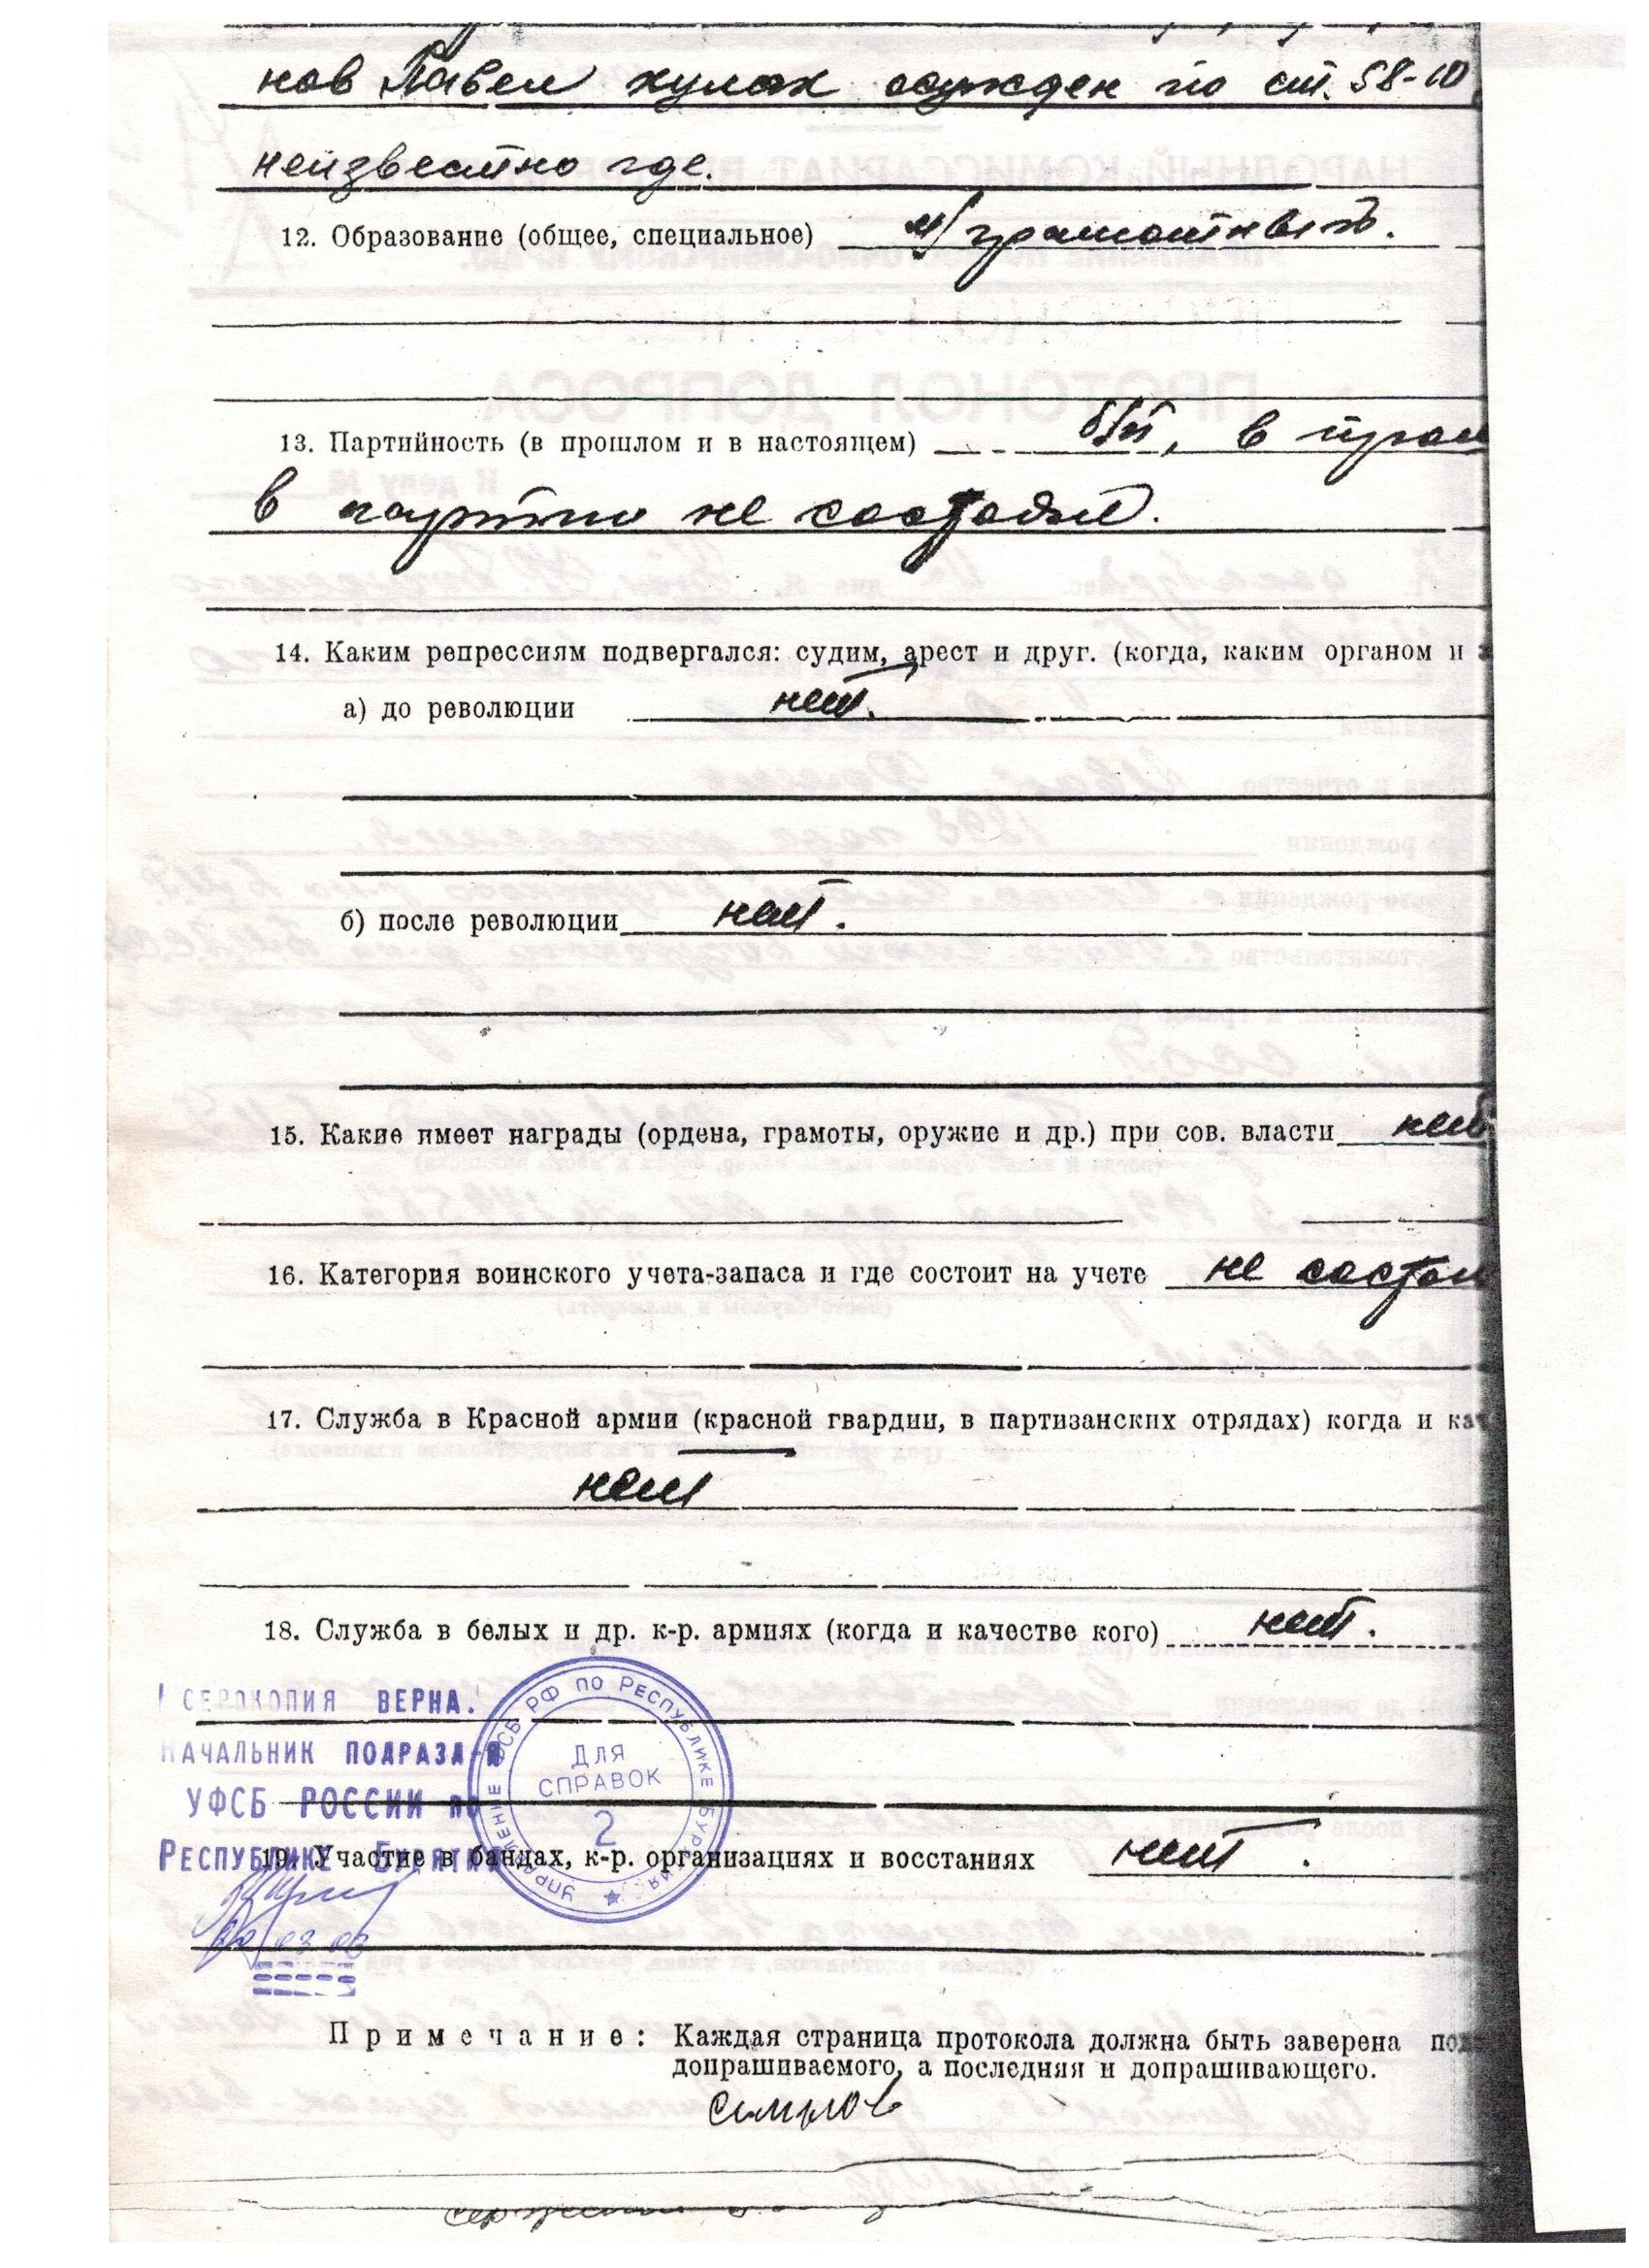 нов Павел кулак осужден по ст. 58-10
неизвестно где.
12. Образование (общее, специальное) м/грамотный.
13. Партийность (в прошлом и в настоящем) б/п, в прош
в партии не состоял.
14. Каким репрессиям подвергался: судим, арест и друг. (когда, каким органом и
а) до революции нет.
б) после революции нет.
15. Какие имеет награды (ордена, грамоты, оружие и др.) при сов. власти нет
16. Категория воинского учета-запаса и где состоит на учете не состои
17. Служба в Красной армии (красной гвардии, в партизанских отрядах) когда и ка
нет
18. Служба в белых и др. к-р. армиях (когда и качестве кого) нет.
СЕРОКОПИЯ ВЕРНА.
НАЧАЛЬНИК ПОДРАЗД-Я
УФСБ РОССИИ ПО
РЕСПУБЛИКЕ БУРЯТИЯ
УПРАВЛЕНИЕ ФСБ РФ ПО РЕСПУБЛИКЕ БУРЯТИЯ
ДЛЯ
СПРАВОК
2
19. Участие в бандах, к-р. организациях и восстаниях нет.
03 03
Примечание: Каждая страница протокола должна быть заверена под
допрашиваемого, а последняя и допрашивающего.